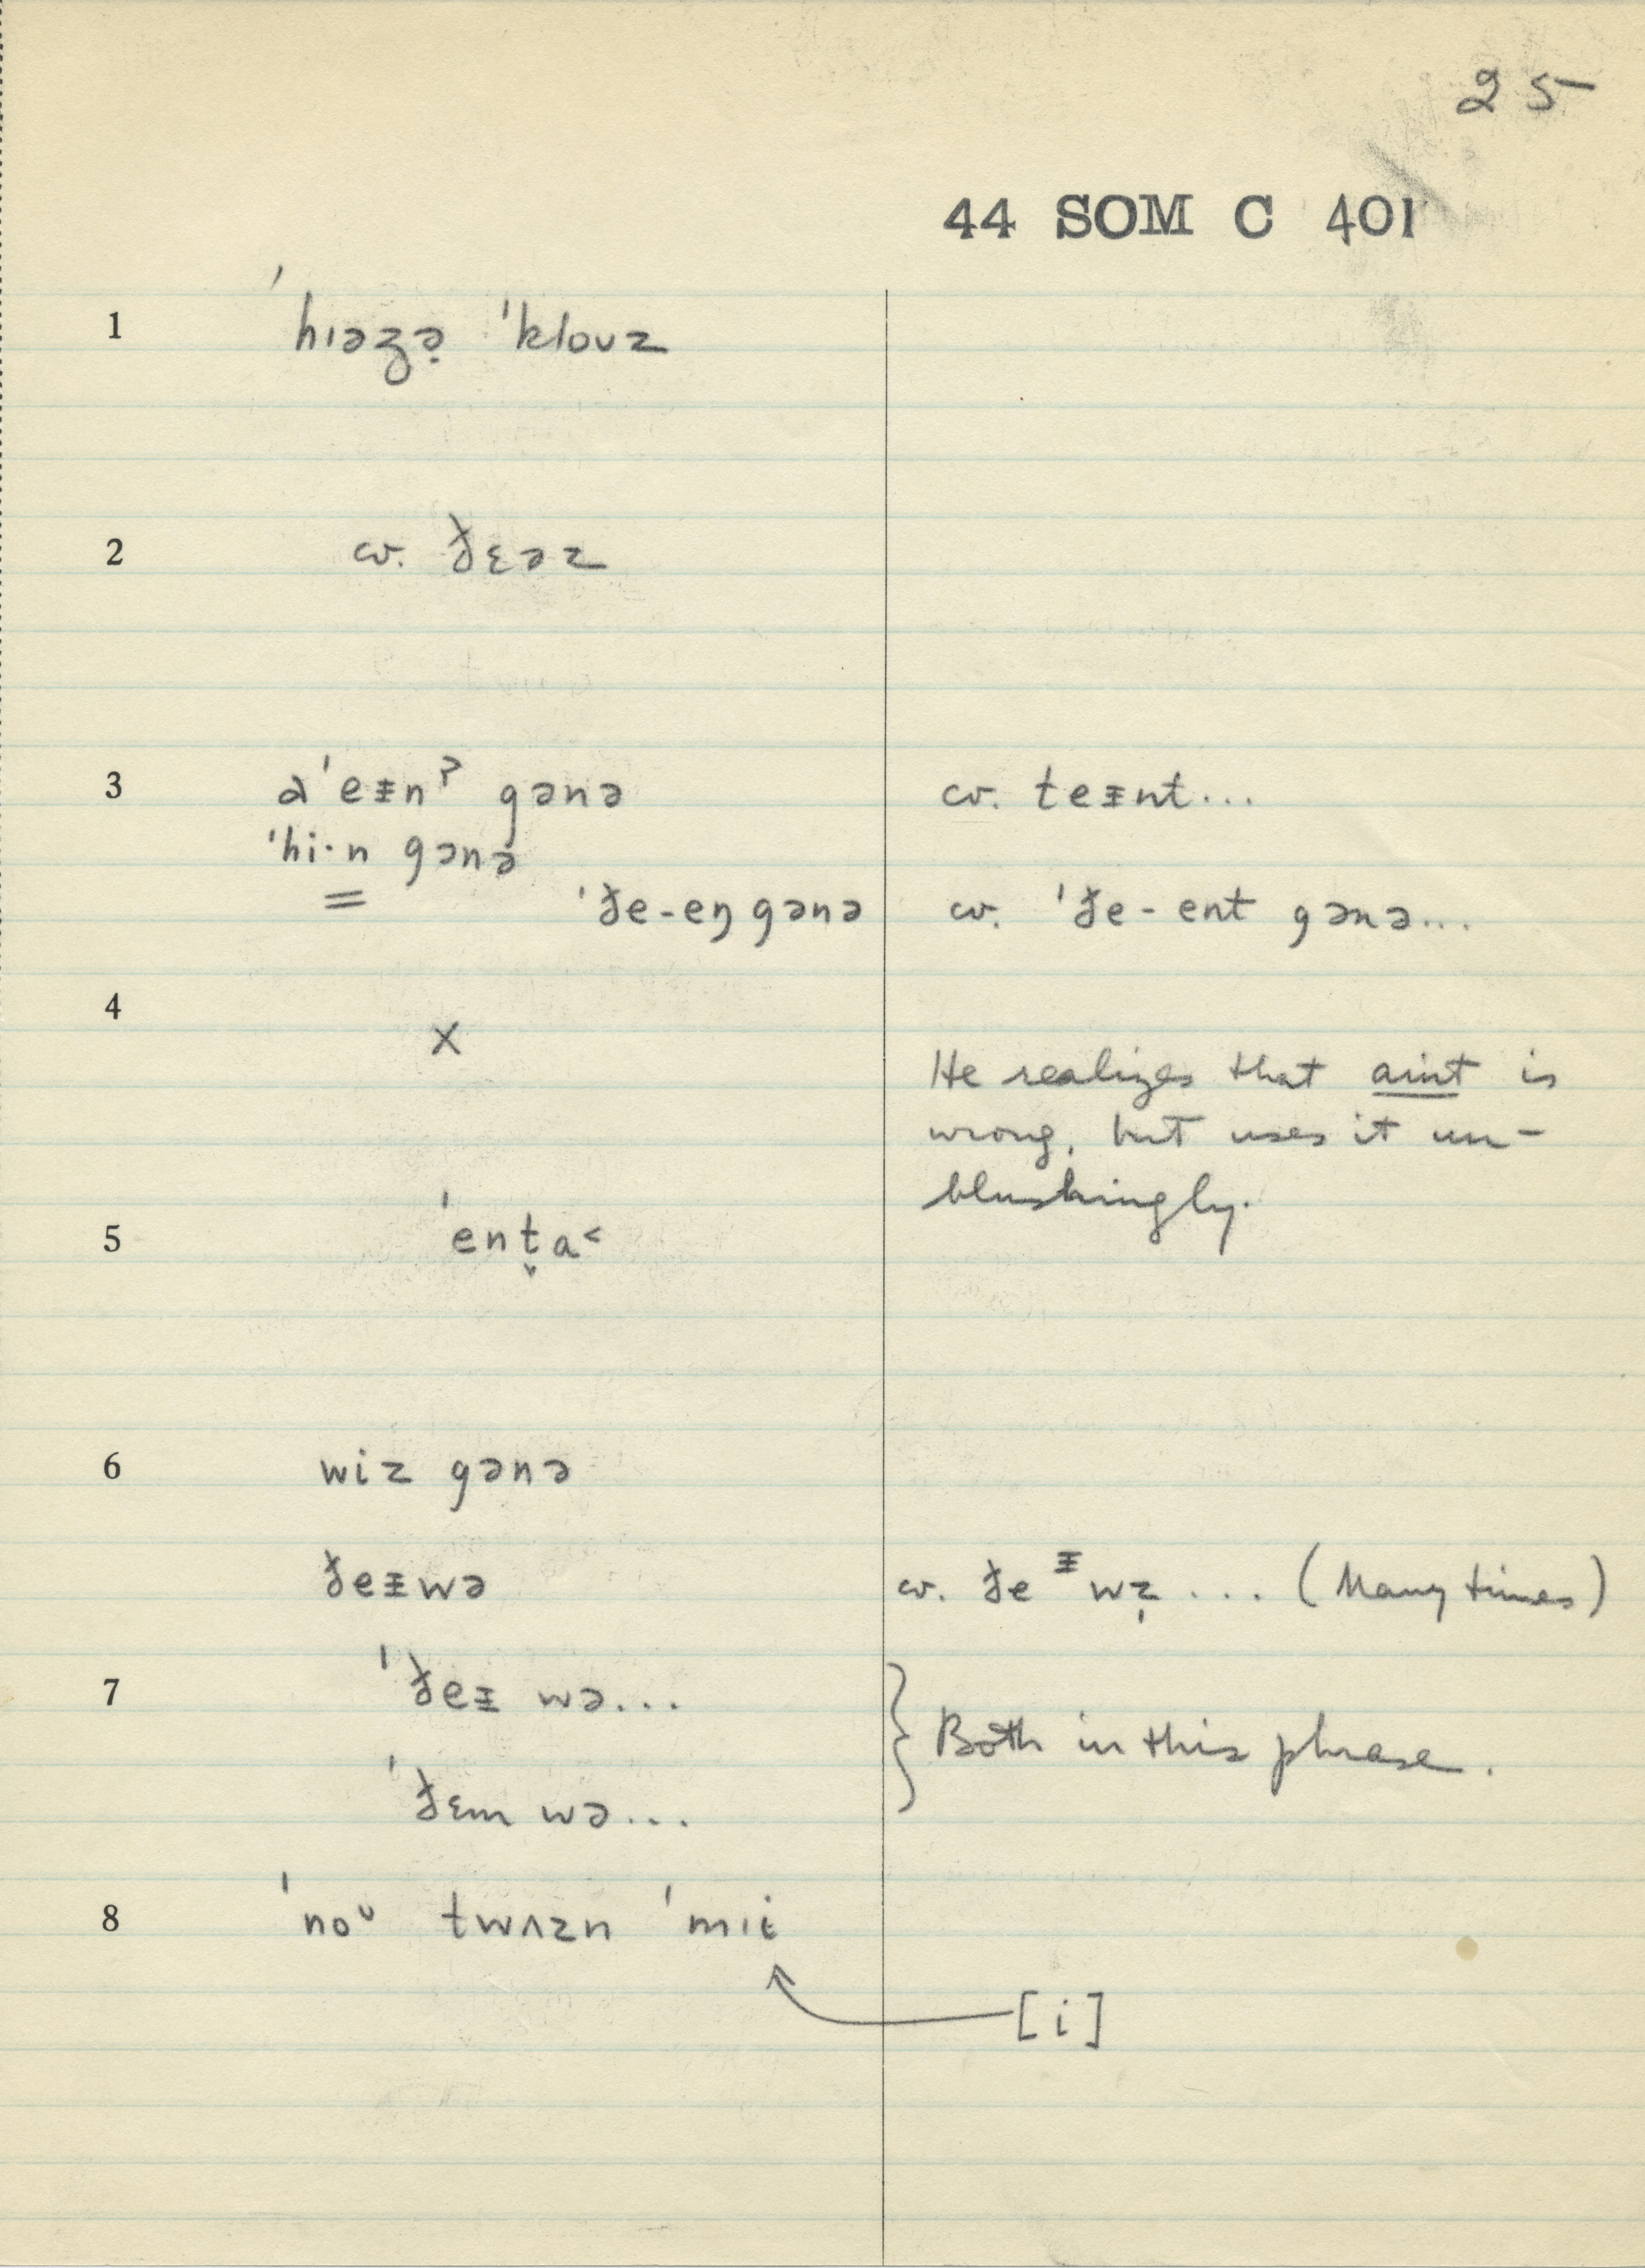 25
44 SOM C 401
1 ˈhɪəʒə̣ ˈkloʊz
2 cv. ðɛəz
3 əˈeᵻnˀ gənə cv. teᵻnt...
ˈhi·n gənə
= ˈðe-eŋ gənə cv. ˈðe-ent gənə...
4 X
He realizes that aint is
wrong, but uses it un-
blushingly.
5 ˈent̬a˂
6 wiz gənə
ðeᵻwə cv. ðeᵻwẓ ... (Many times)
7 ˈðeᵻ wə... } Both in this phrase.
ˈðɛm wə...
8 ˈnoᶷ twʌzn ˈmɪi
[i]